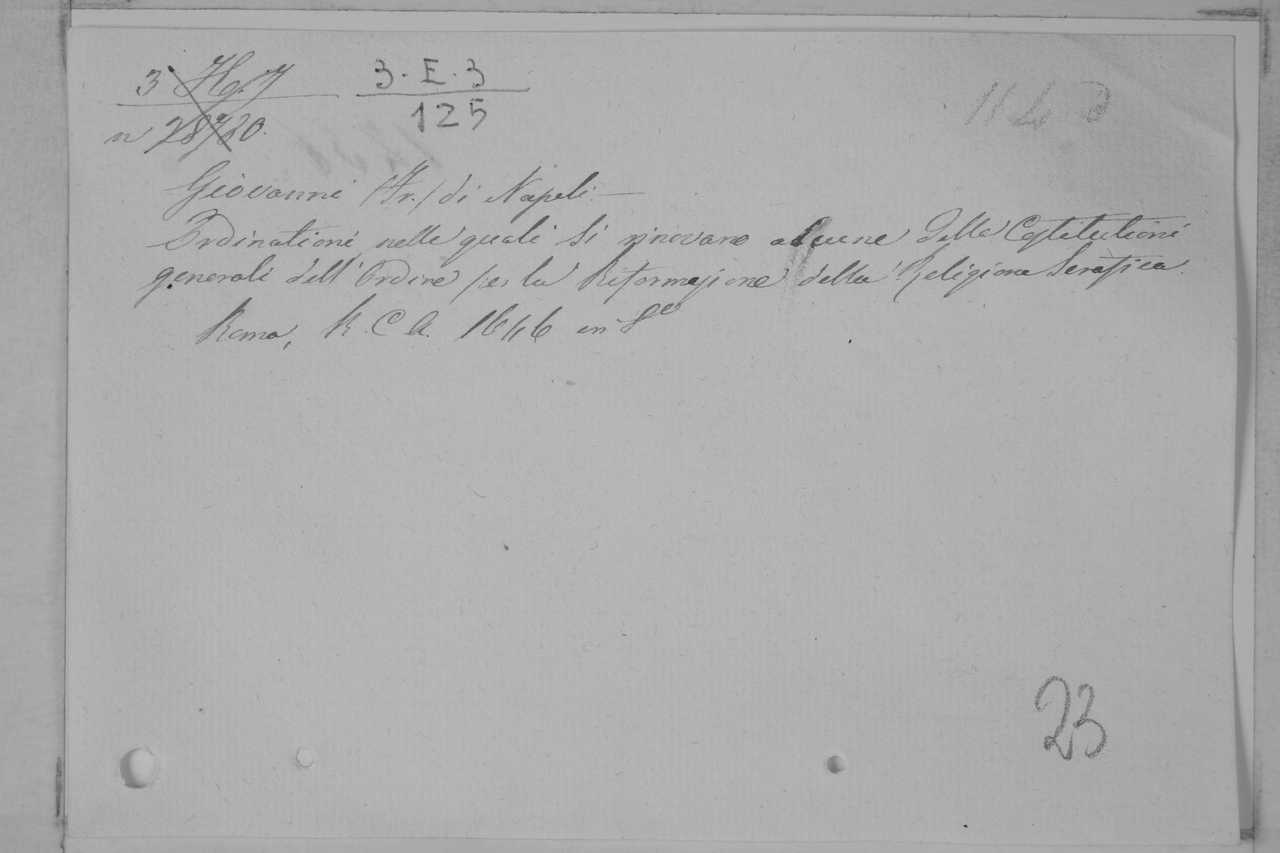 3 H. 7
3 · E · 3
125
n 28720.
Giovanni (Fr.) di Napoli —
Ordinationi, nelle quali si rinovano alcune delle Costitutioni
generali dell'Ordine per la Riformazione della Religione Serafica.
Roma, R. C A. 1646 in 8º
23